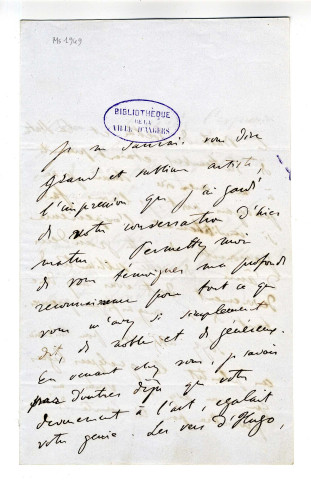 Ms 1949
BIBLIOTHÈQUE
DE LA
VILLE D'ANGERS
Je ne saurais vous dire
grand et sublime artiste,
l'impression que j'ai gardé
de notre conversation d'hier
matin. Permettez moi
de vous témoigner ma profonde
reconnaissance pour tout ce que
vous m'avez si simplement
dit, de noble et de généreux.
En venant chez vous, je savais
par d'autres déjà que votre
dévouement à l'art, égalait
votre génie. Les vers d'Hugo,